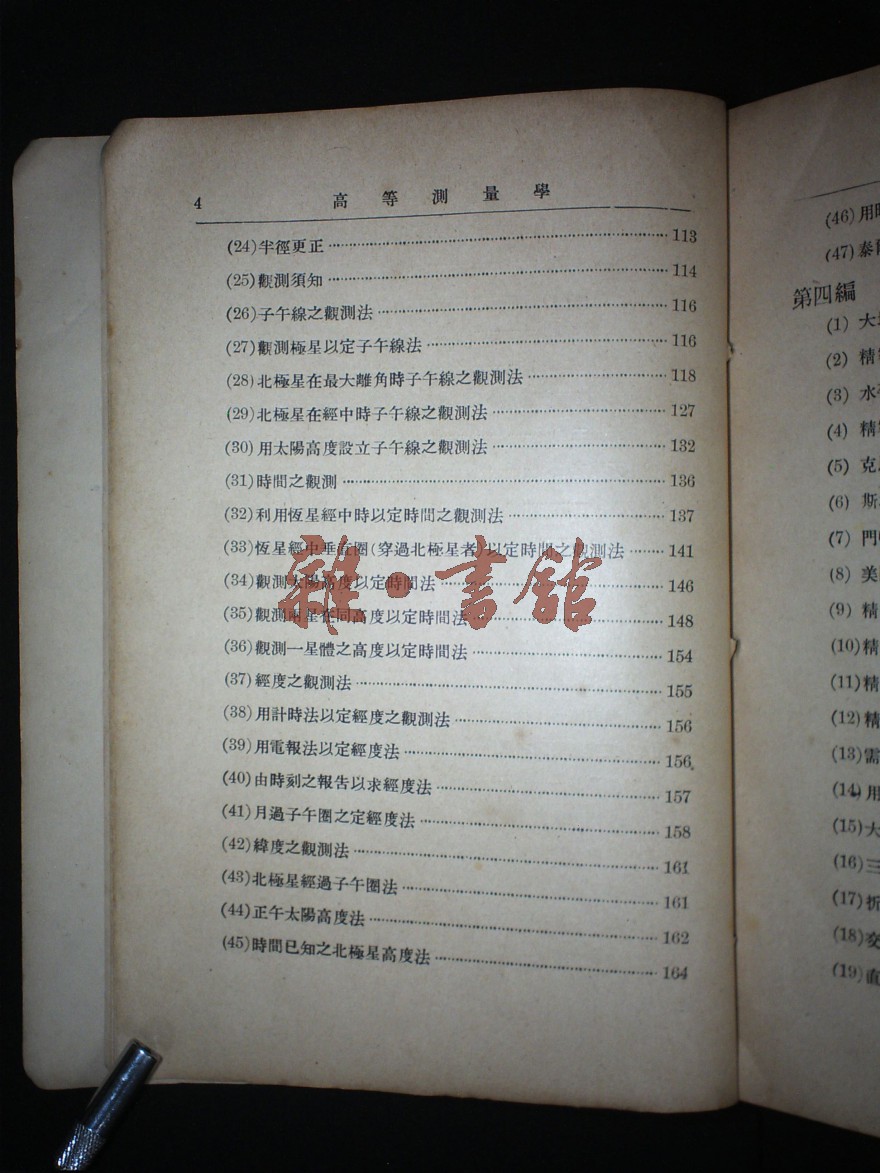 4 高等測量學
(24)半徑更正 113
(25)觀測須知 114
(26)子午線之觀測法 116
(27)觀測極星以定子午線法 116
(28)北極星在最大離角時子午線之觀測法 118
(29)北極星在經中時子午線之觀測法 127
(30)用太陽高度設立子午線之觀測法 132
(31)時間之觀測 136
(32)利用恆星經中時以定時間之觀測法 137
(33)恆星經中垂直圈(穿過北極星者)以定時間之觀測法 141
(34)觀測太陽高度以定時間法 146
(35)觀測兩星在同高度以定時間法 148
(36)觀測一星體之高度以定時間法 154
(37)經度之觀測法 155
(38)用計時法以定經度之觀測法 156
(39)用電報法以定經度法 156
(40)由時刻之報告以求經度法 157
(41)月過子午圈之定經度法 158
(42)緯度之觀測法 161
(43)北極星經過子午圈法 161
(44)正午太陽高度法 162
(45)時間已知之北極星高度法 164
雜·書館
(46)用
(47)泰
第四編
(1) 大
(2) 精
(3) 水
(4) 精
(5) 克
(6) 斯
(7) 門
(8) 美
(9) 精
(10)精
(11)精
(12)精
(13)需
(14)用
(15)大
(16)三
(17)折
(18)
(19)直